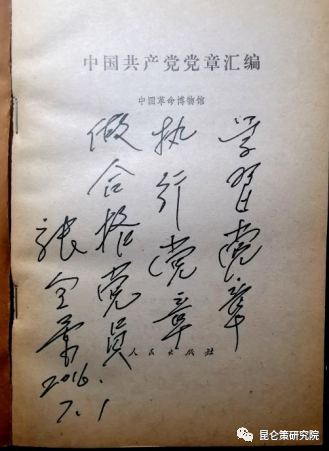 中国共产党党章汇编
中国革命博物馆
学习党章
执行党章
做合格党員
张全景
2016.
7.1
人民出版社
昆仑策研究院